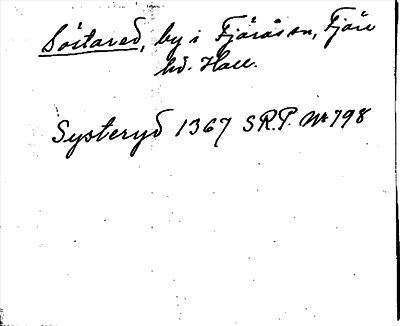 Söitared, by i Fjärås sn, Fjäre
hd. Hall.
Systeryd 1367 SRP. Nr 798